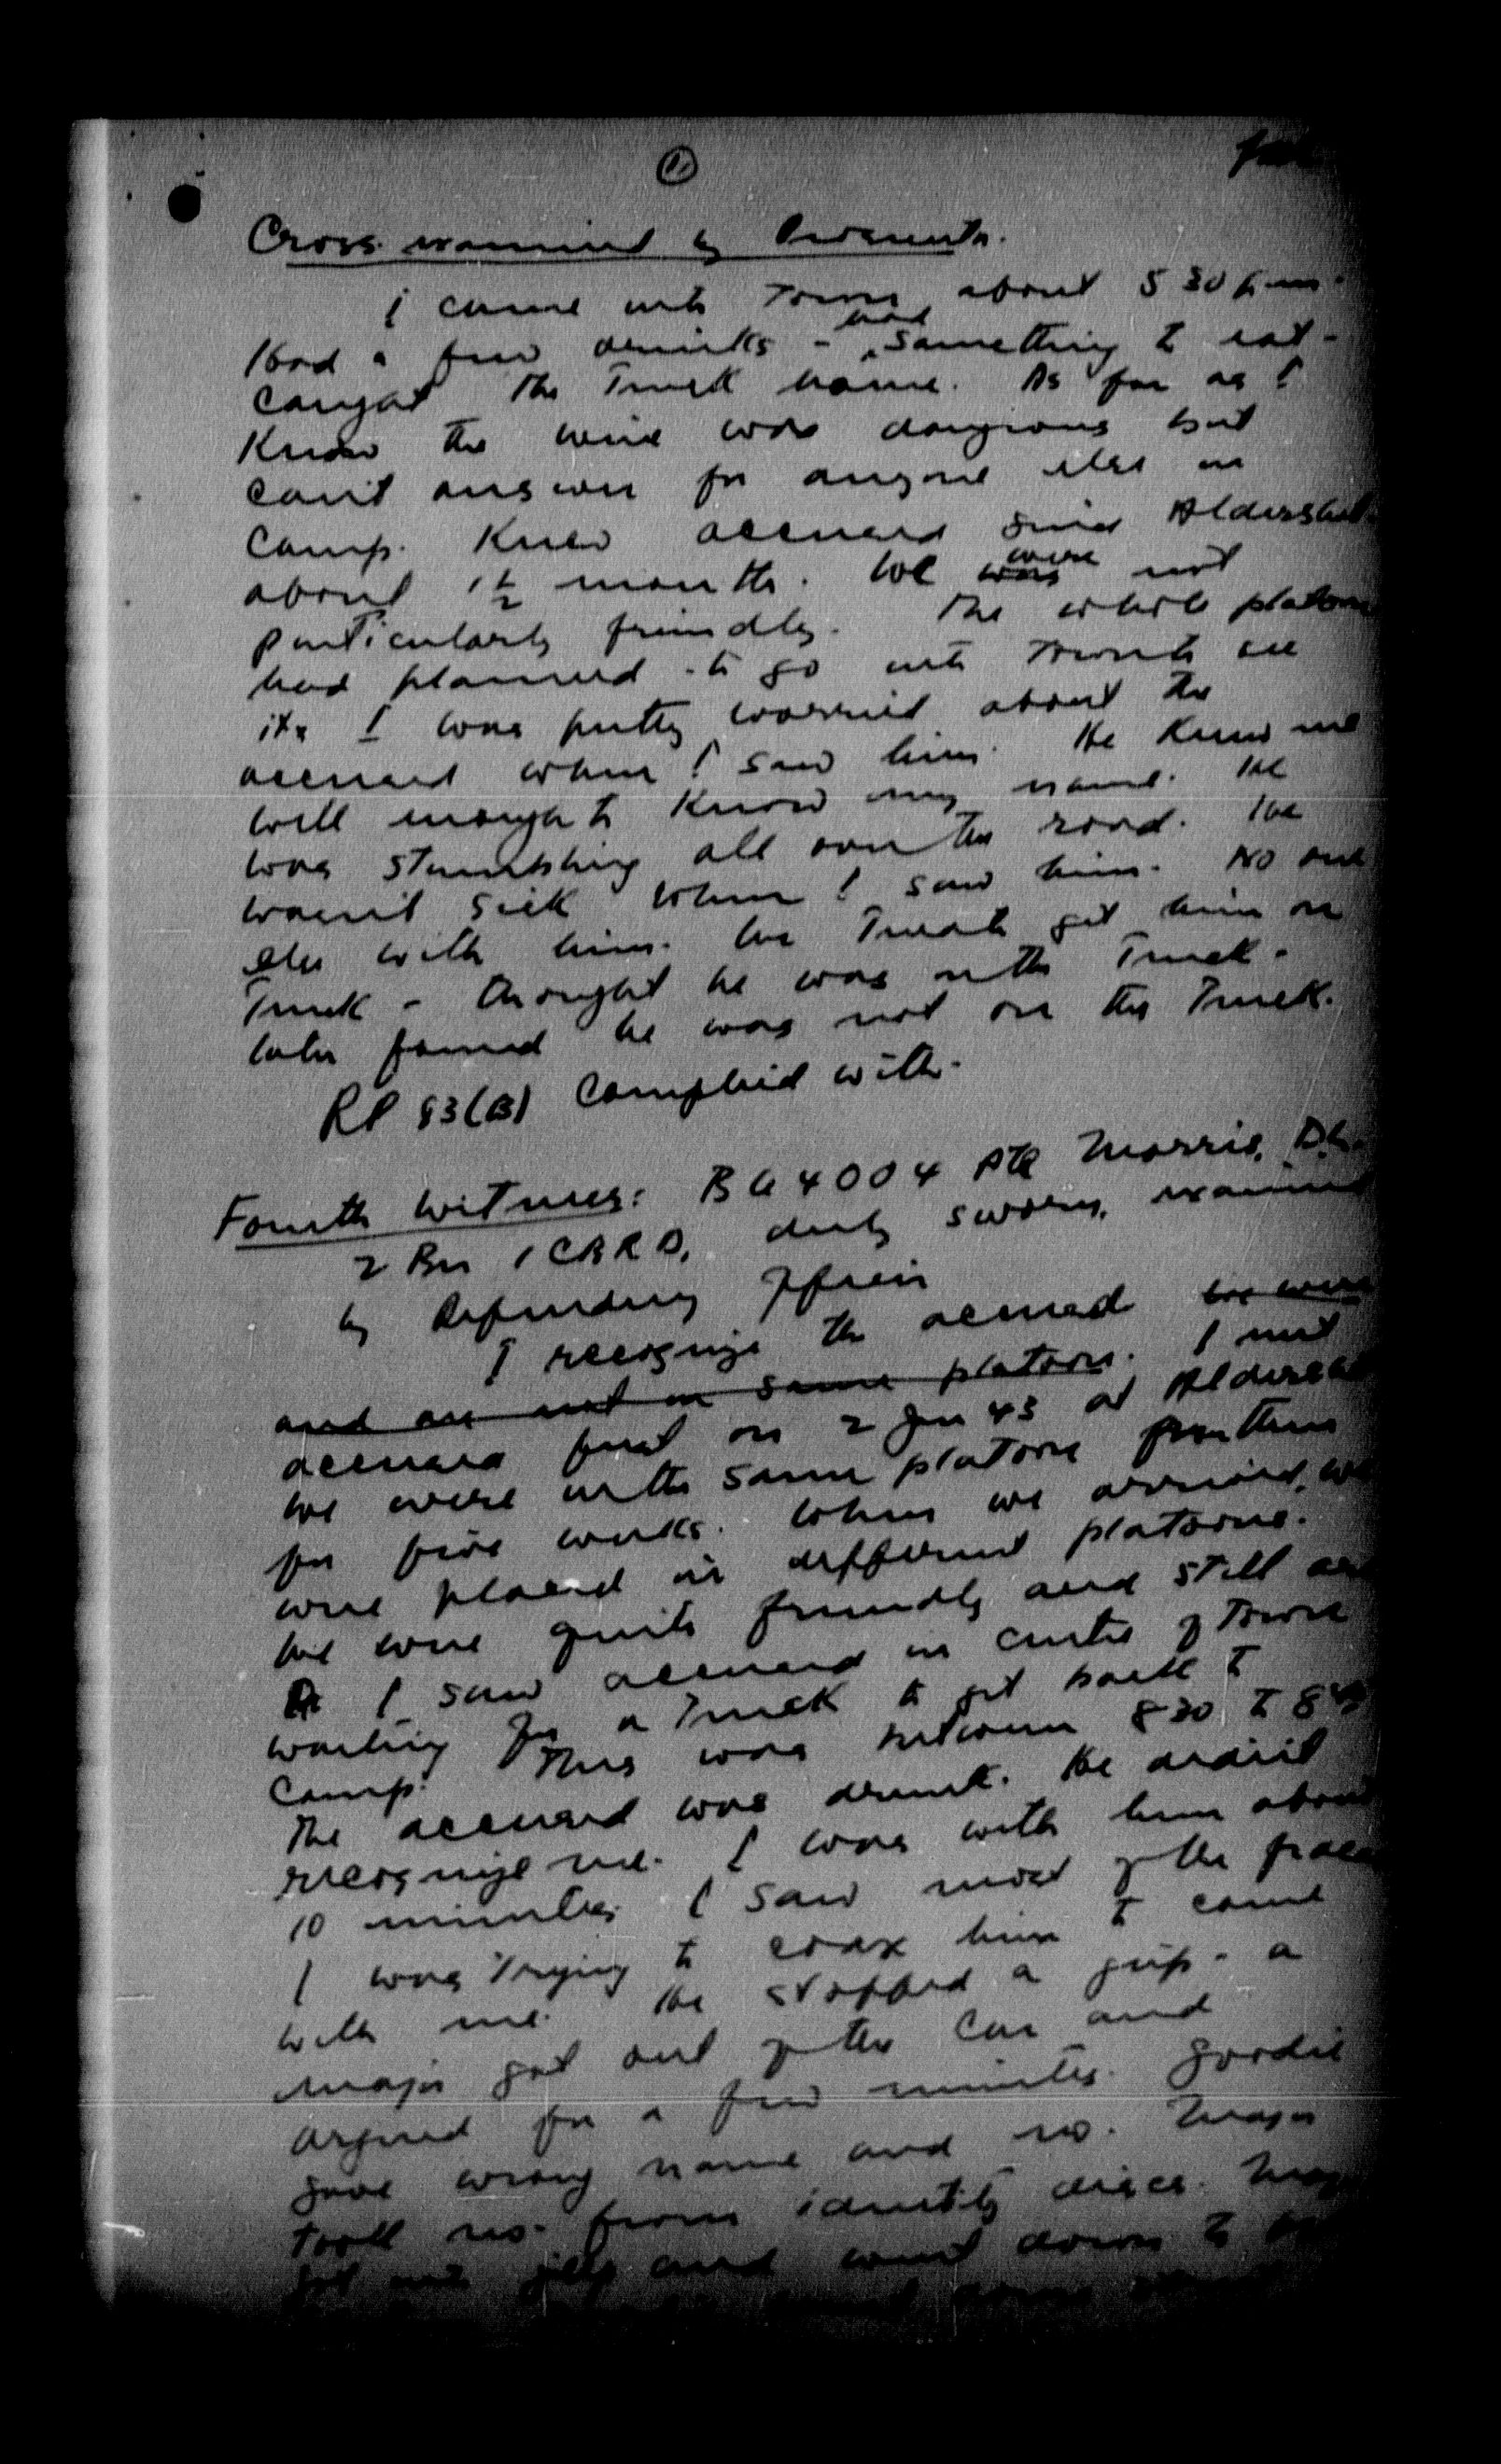 Cross examined by Prosecutor.
I came into Town about 5 30 p.m.
Had a few drinks - had something to eat -
caught the Truck home. As far as I
know the wine was dangerous but
can't answer for anyone else in
Camp. Knew accused since Aldershot
about 1½ months. We was were not
particularly friendly. The whole platoon
had planned to go into Town
I was pretty worried about the
accused when I saw him. He knew me
well enough to know my name. He
was stumbling all over the road. He
wasn't sick when I saw him. No one
else with him. We get him on
Truck - thought he was on the Truck -
later found he was not on the Truck.
RP 83(B) Complied with.
Fourth Witness: B 64004 Pte Morris,
2 Bn 1 CBRD, duly sworn, examined
by Defending Officer
I recognize the accused we were
and are not in same platoon. I met
accused first on 2 Jan 43 at Aldershot
We were in the same platoon for there
for five weeks. When we arrived, we
were placed in different platoons.
We were quite friendly and still are
I saw accused in centre of Town
waiting for a Truck to get back to
Camp. This was between 8 30 to 8
The accused was drunk. He didn't
recognize me. I was with him about
10 minutes. I saw most of the
I was trying to coax him to come
with me. He stopped a jeep - a
major got out of the car and
argued for a few minutes.
gave wrong name and no. Major
took no. from identity discs.
and went down to